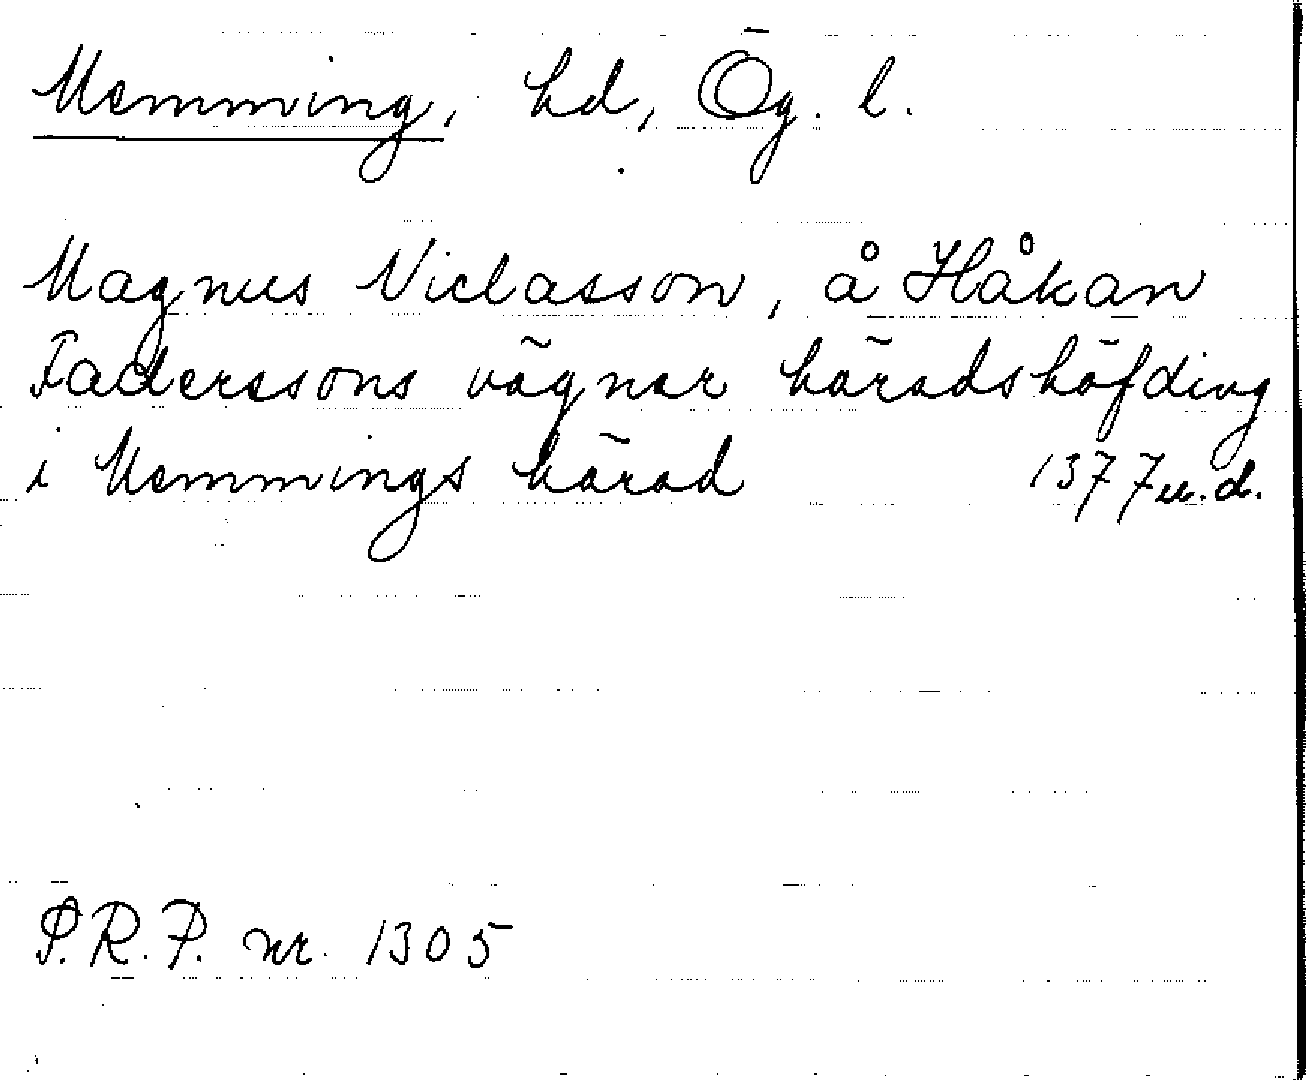 Memming, hd, Ög. l.
Magnus Niclasson, å Håkan
Faderssons vägnar häradshöfding
i Memmings härad 1377 u. d.
P.R.P. nr. 1305